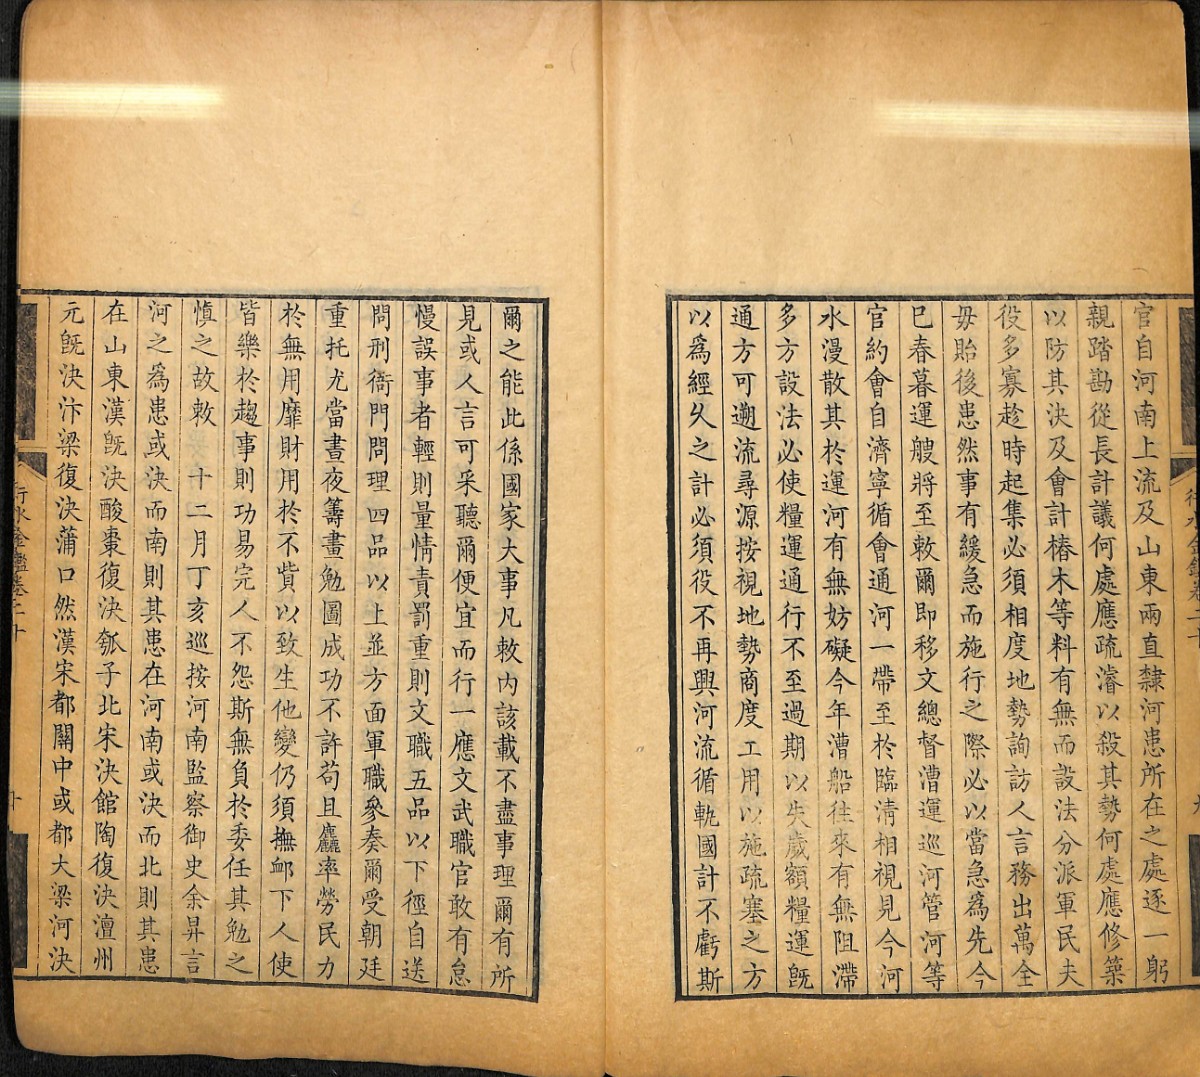 官自河南上流及山東兩直隸河患所在之處逐一躬
親踏勘從長計議何處應疏濬以殺其勢何處應修築
以防其決及會計樁木等料有無而設法分派軍民夫
役多寡趁時起集必須相度地勢詢訪人言務出萬全
毋貽後患然事有緩急而施行之際必以當急為先今
已春暮運艘將至敕爾即移文總督漕運巡河管河等
官約會自濟寧循會通河一帶至於臨淸相視見今河
水漫散其於運河有無妨礙今年漕船往來有無阻滯
多方設法必使糧運通行不至過期以失歲額糧運旣
通方可遡流尋源按視地勢商度工用以施疏塞之方
以爲經久之計必須役不再興河流循軌國計不虧斯
爾之能此係國家大事凡敕內該載不盡事理爾有所
見或人言可采聽爾便宜而行一應文武職官敢有怠
慢誤事者輕則量情責罰重則文職五品以下徑自送
問刑衙門問理四品以上並方面軍職參奏爾受朝廷
重托尤當晝夜籌畫勉圖成功不許苟且麤率勞民力
於無用靡財用於不貲以致生他變仍須撫卹下人使
皆樂於趨事則功易完人不怨斯無負於委任其勉之
愼之故敕 十二月丁亥巡按河南監察御史余昇言
河之爲患或決而南則其患在河南或決而北則其患
在山東漢旣決酸棗復決瓠子北宋決館陶復決澶州
元旣決汴梁復決蒲口然漢宋都關中或都大梁河決
行水金鑑卷二十
十